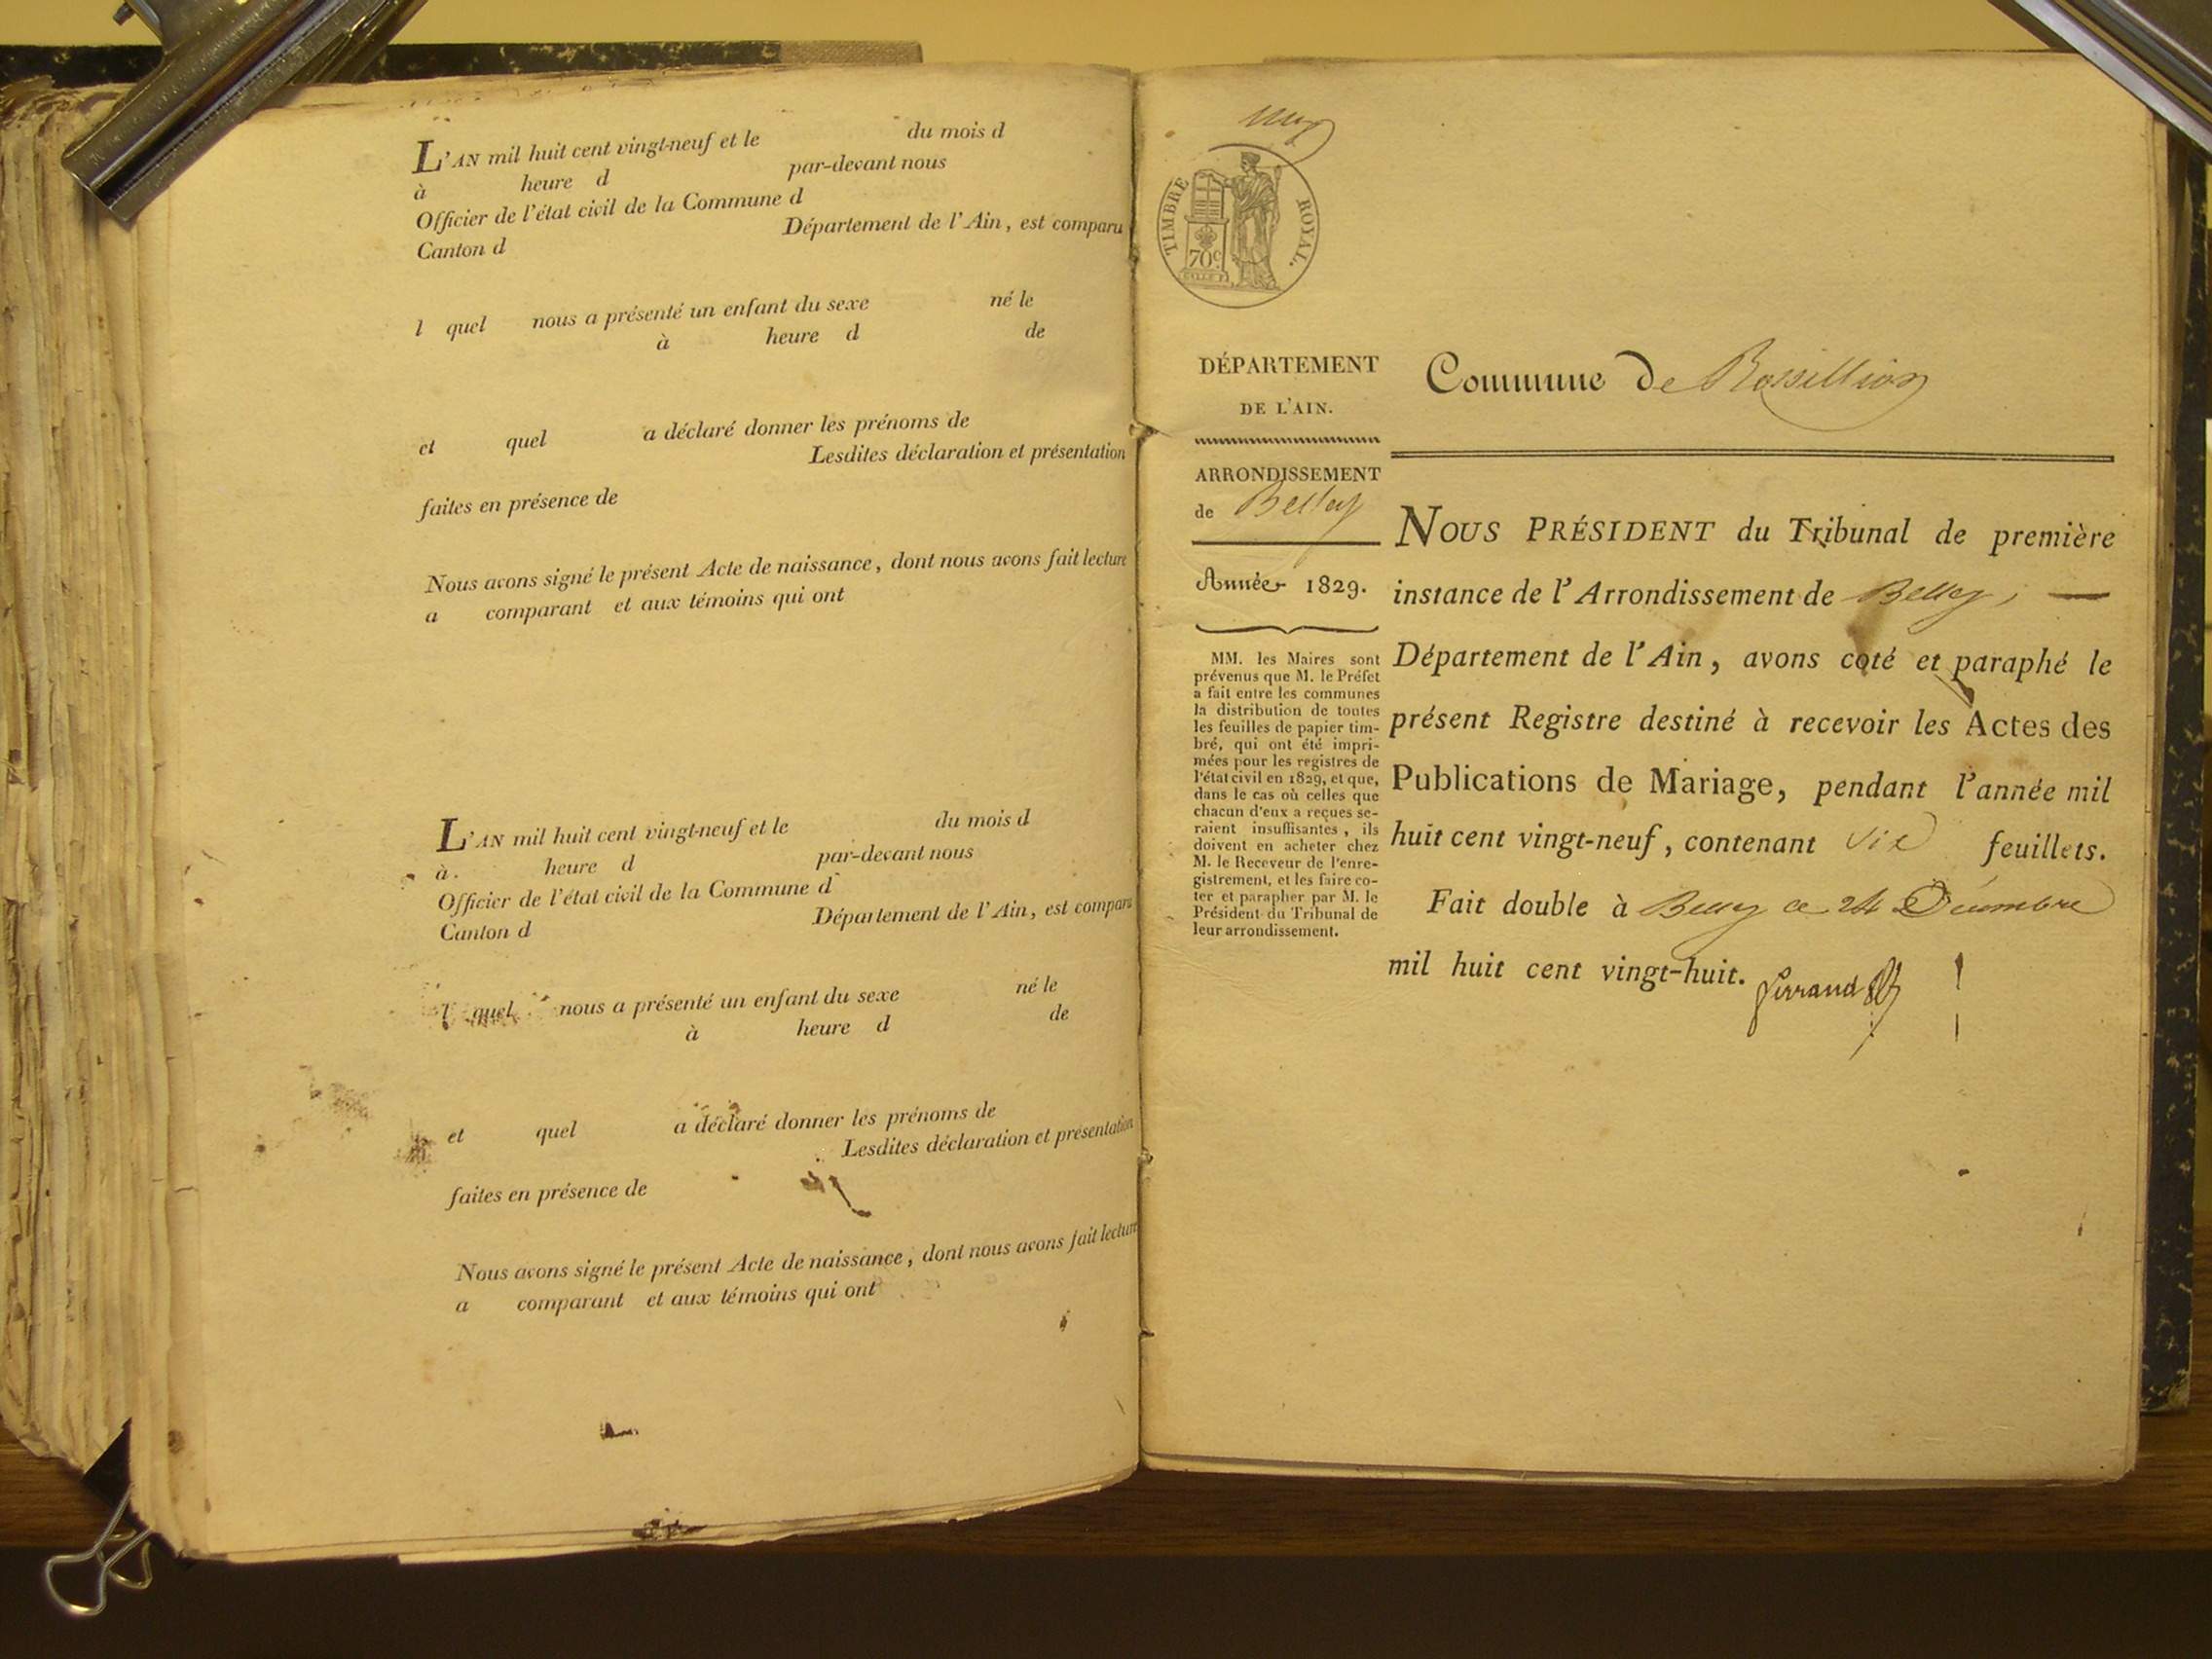 L'AN mil huit cent vingt-neuf et le du mois d
à heure d par-devant nous
Officier de l'état civil de la Commune d
Canton d Département de l'Ain, est comparu
l quel nous a présenté un enfant du sexe né le
à heure d de
et quel a déclaré donner les prénoms de
Lesdites déclaration et présentation
faites en présence de
Nous avons signé le présent Acte de naissance, dont nous avons fait lecture
a comparant et aux témoins qui ont
L'AN mil huit cent vingt-neuf et le du mois d
à heure d par-devant nous
Officier de l'état civil de la Commune d
Canton d Département de l'Ain, est comparu
l quel nous a présenté un enfant du sexe né le
à heure d de
et quel a déclaré donner les prénoms de
Lesdites déclaration et présentation
faites en présence de
Nous avons signé le présent Acte de naissance, dont nous avons fait lecture
a comparant et aux témoins qui ont
TIMBRE ROYAL.
70c
DÉPARTEMENT
DE L'AIN.
ARRONDISSEMENT
de Belley
Année 1829.
MM. les Maires sont
prévenus que M. le Préfet
a fait entre les communes
la distribution de toutes
les feuilles de papier tim-
bré, qui ont été impri-
mées pour les registres de
l'état civil en 1829, et que,
dans le cas où celles que
chacun d'eux a reçues se-
raient insuffisantes, ils
doivent en acheter chez
M. le Receveur de l'enre-
gistrement, et les faire co-
ter et parapher par M. le
Président du Tribunal de
leur arrondissement.
Commune de Rossillion
NOUS PRÉSIDENT du Tribunal de première
instance de l'Arrondissement de Belley,
Département de l'Ain, avons coté et paraphé le
présent Registre destiné à recevoir les Actes des
Publications de Mariage, pendant l'année mil
huit cent vingt-neuf, contenant feuillets.
Fait double à Belley ce 24 Décembre
mil huit cent vingt-huit.